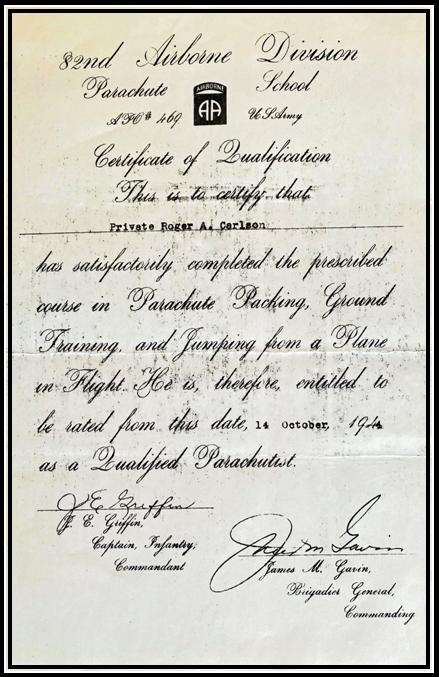 82nd Airborne Division
Parachute School
AIRBORNE
AA
APO# 469 US Army
Certificate of Qualification
This is to certify that
Private Roger A. Carlson
has satisfactorily completed the prescribed
course in Parachute Packing, Ground
Training, and Jumping from a Plane
in Flight. He is, therefore, entitled to
be rated from this date, 14 October, 1944
as a Qualified Parachutist.
J E Griffin
J. E. Griffin,
Captain, Infantry,
Commandant
James M Gavin
James M. Gavin,
Brigadier General,
Commanding